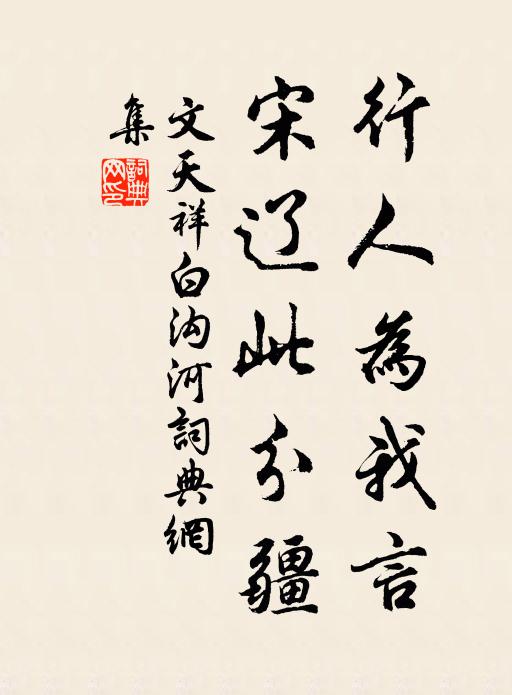 行人為我言
宋辽此分疆
文天祥白沟河詞典網
集
詞典網印